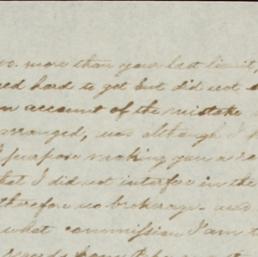 more than your last limit,
hard to get but did not
on account of the mistake
arranged, was although I
purpose making you a
that I did not interfere in the
therefore no brokerage
what commission I am